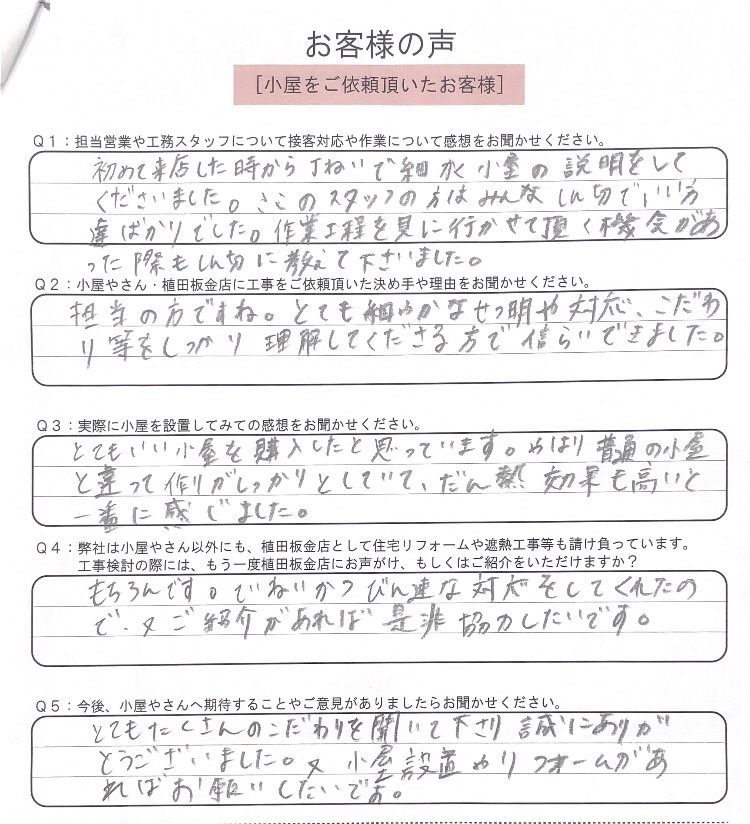 お客様の声
[小屋をご依頼頂いたお客様]
Q1：担当営業や工務スタッフについて接客対応や作業について感想をお聞かせください。
初めて来店した時から丁ねいで細かく小屋の説明をして
くださいました。ここのスタッフの方はみんなしん切でいい方
達ばかりでした。作業工程を見に行かせて頂く機会があ
った際もしん切に教えて下さいました。
Q2：小屋やさん・植田板金店に工事をご依頼頂いた決め手や理由をお聞かせください。
担当の方ですね。とても細やかなせつ明や対応、こだわ
り等をしっかり理解してくださる方で信らいできました。
Q3：実際に小屋を設置してみての感想をお聞かせください。
とてもいい小屋を購入したと思っています。やはり普通の小屋
と違って作りがしっかりとしていて、だん熱効果も高いと
一番に感じました。
Q4：弊社は小屋やさん以外にも、植田板金店として住宅リフォームや遮熱工事等も請け負っています。
工事検討の際には、もう一度植田板金店にお声がけ、もしくはご紹介をいただけますか？
もちろんです。ていねいかつびん速な対応をしてくれたの
で、又ご紹介があれば是非協力したいです。
Q5：今後、小屋やさんへ期待することやご意見がありましたらお聞かせください。
とてもたくさんのこだわりを聞いて下さり誠にありが
とうございました。又小屋設置やリフォームがあ
ればお願いしたいです。